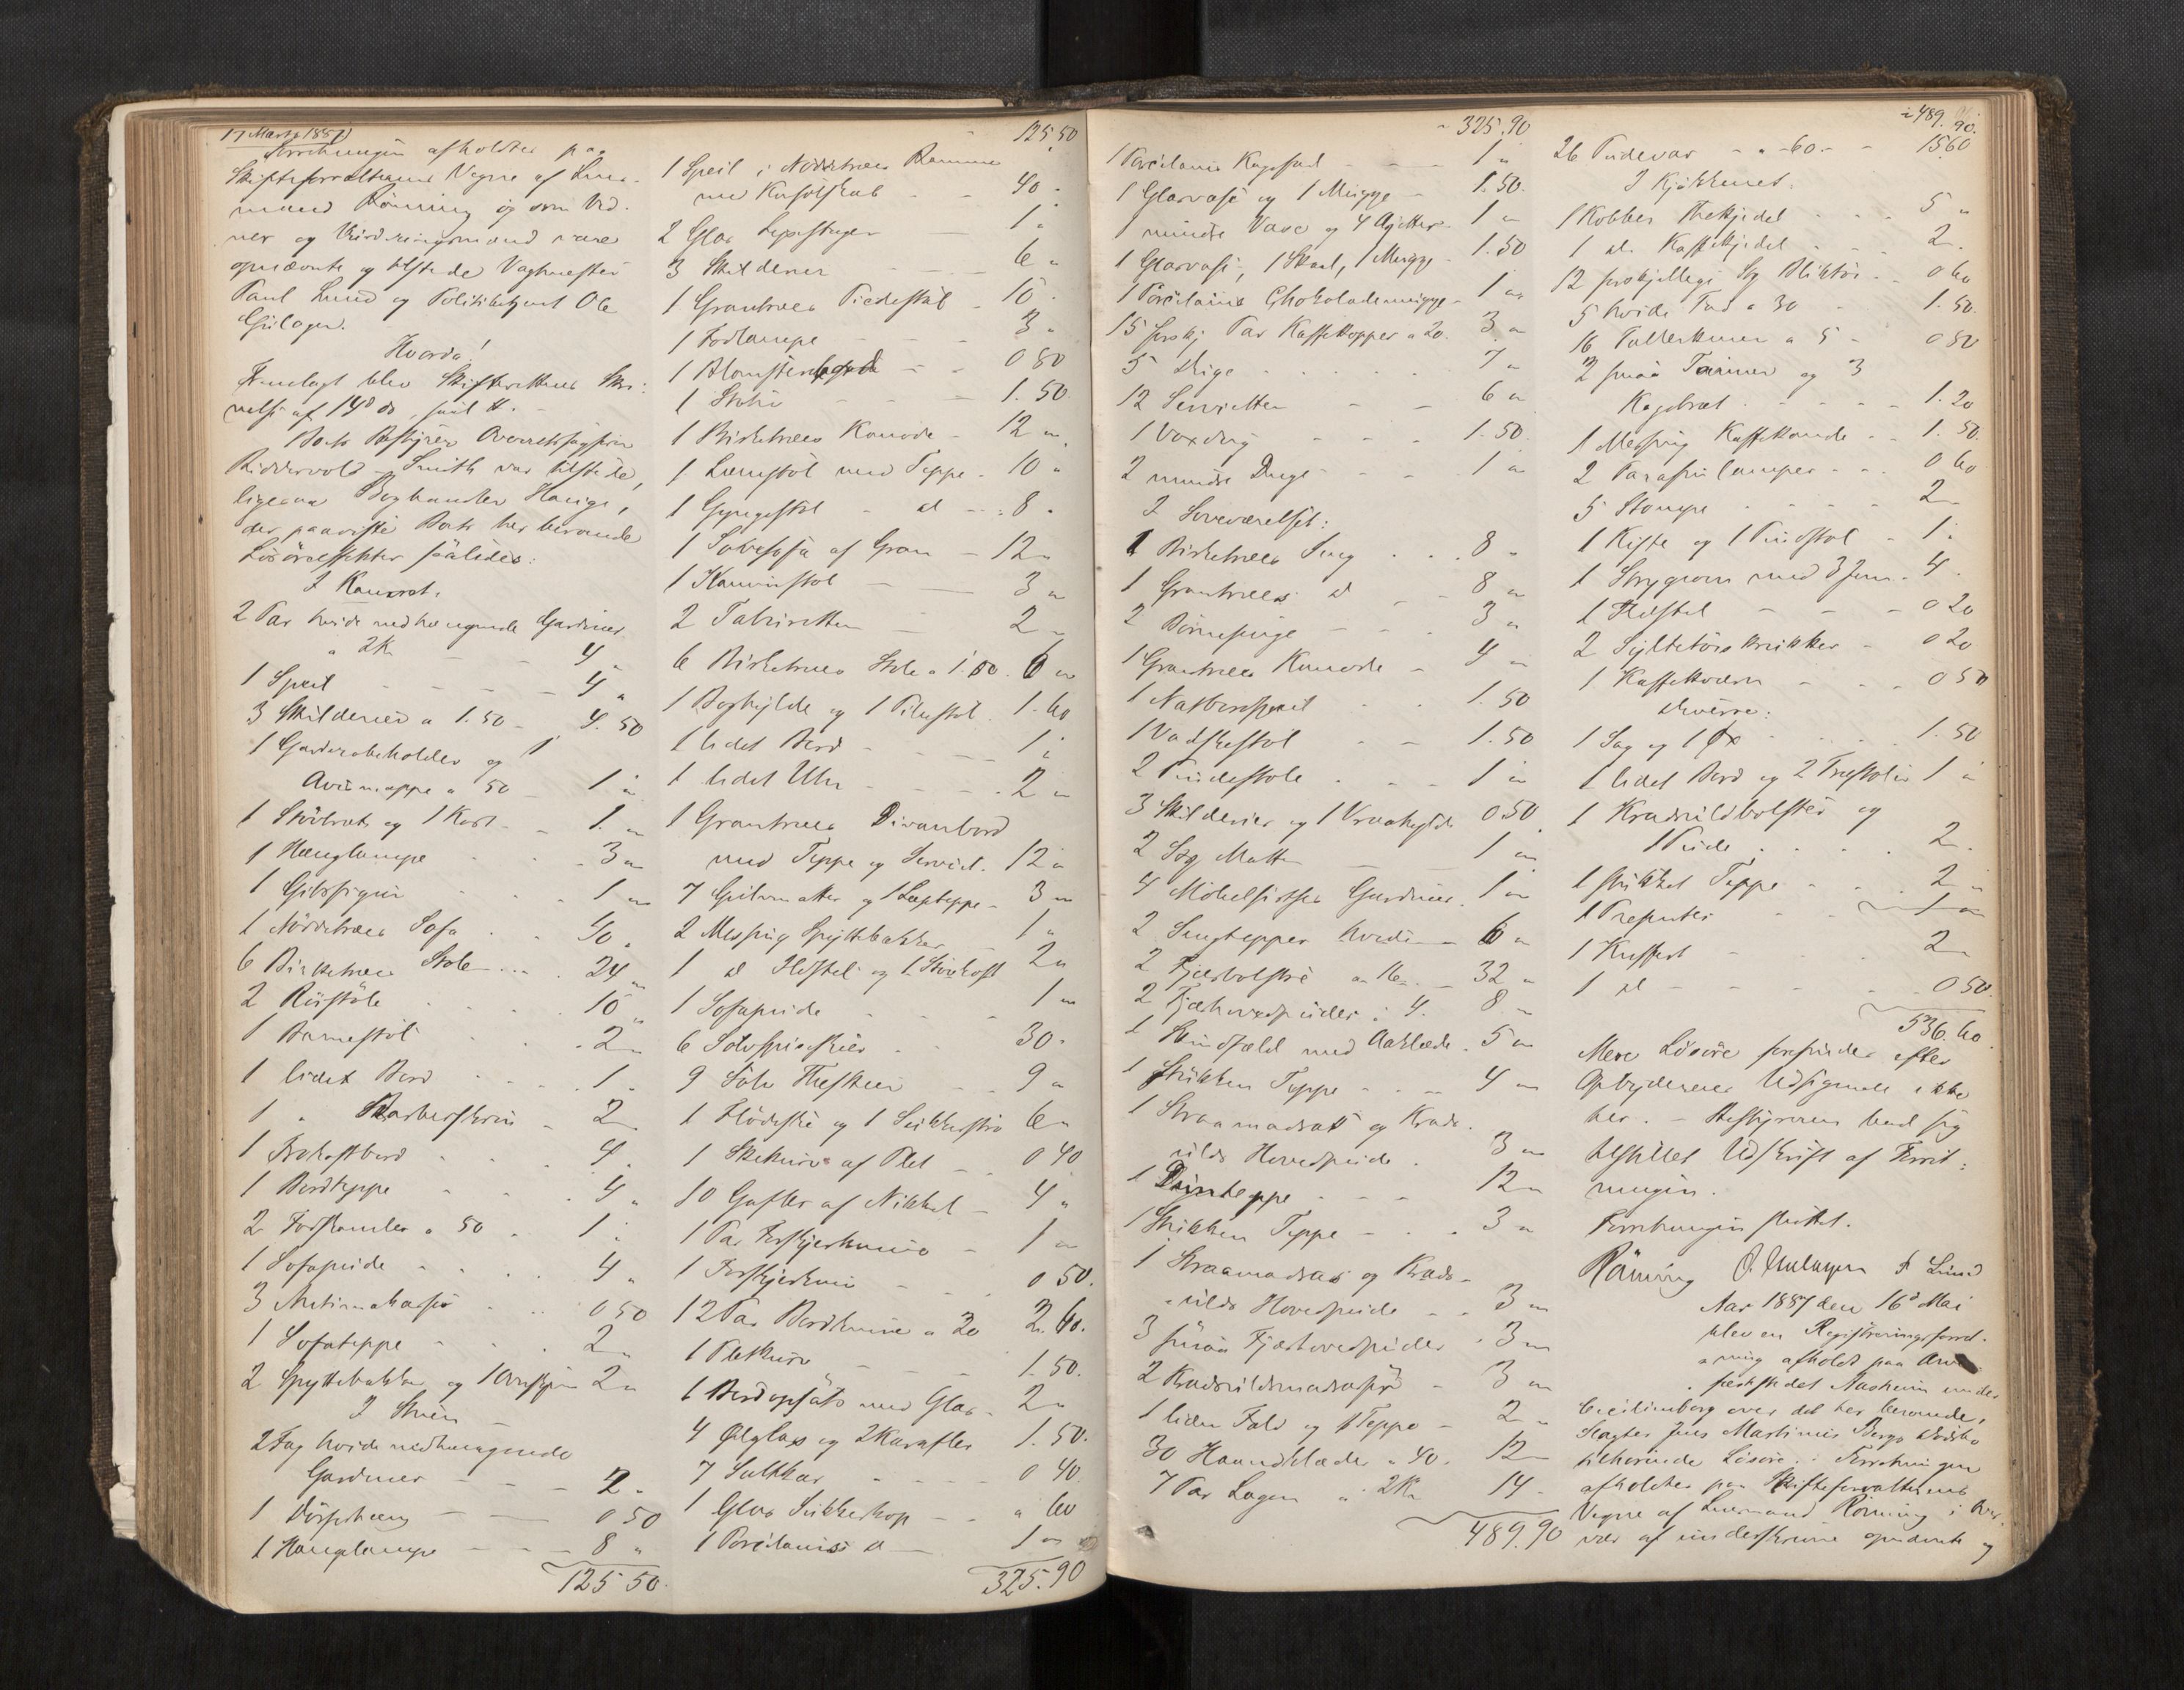 17 Marts 1887
Forretningen afholdtes paa
Skifteforvalterens Vegne af Lens-
mand Rönning og som Vid-
ner og Vurderingsmænd vare
opnævnte og tilstede Vagtmester
Paul Lund og Politibetjent Ole
Gulager.
Hvorda!
Fremlagt blev Skifterettens Skri-
velse af 14d ds,
Boets Bestyrer Overretssagfører
Riddervold Smith var tilstede,
ligesaa Boghandler Hauge,
der paaviste Boets her berørende
Lösöreeffekter saaledes:
I Kammeret.
2 Par hvide nedhængende Gardiner
a 2Kr - - 4 "
1 Speil - - - - 4 "
3 Skilderier a 1.50 - 4.50
1 Garderobeholder og 1
Avismappe a 50 - 1 "
1 Skrivebræt og 1 Kort - - 1. "
1 Hænglampe - - 3 "
1 Gibsfigur - - 1 "
1 Nöddetræes Sofa - - 40 "
6 Birketræes Stole - - 24 "
2 Rörstole - - 10 "
1 Barnestol - - 2 "
1 lidet Bord - - 1 "
1 " Barberskrin - 2 "
1 Frokostbord - - 4 "
1 Bordteppe - - 4 "
2 Forskamler a 50 - 1 "
1 Sofapude - - 4 "
3 Antimakasser - - 0 50
1 Sofateppe - - 2 "
2 Spyttebakker og 1 Ovnskjerm 2 "
I Stuen
2 Fag hvide nedhængende
Gardiner - - 2 "
1 Dörforhæng - - 0 50
1 Hænglampe - - 8 "
125 50
125.50
1 Speil i Nöddetræes Ramme
med Konsolskab - - 40 "
2 Glas Lysestager - 1 "
3 Skilderier - - 6 "
1 Grantræes Piedestal - 10 "
1 Bordlampe - - 3 "
1 Blomsterbord - - 0 80
1 Statue - - 1.50
1 Birketræes Komode - 12 "
1 Lænestol med Teppe - 10 "
1 Gyngestol - do - - 8 "
1 Sovesofa af Gran - 12 "
1 Kaminstol - - 3 "
2 Taburetter - - 2 "
6 Birketræes Stole a 1.00 6 "
1 Boghylde og 1 Pilestol 1.60
1 lidet Bord - - 1 "
1 lidet Uhr - - 2 "
1 Grantræes Divanbord
med Teppe og Serviet. 12 "
7 Gulvmatter og 1 Lapteppe - 3 "
2 Messing Spyttebakker - 1 "
1 do Ildstel og 1 Stövkost 2 "
1 Sofapude - - 1 "
6 Sölvspiseskeer - 30 "
9 Sölv Theskeer - - 9 "
1 Flödeske og 1 Sukkerströ 6 "
1 Skekurv af Plet - - 0 40
10 Gafler af Nikkel - 4 "
1 Par Forskjærkniv - 1 "
1 Forskjærkniv - 0 50.
12 Par Bordknive a 20 2.40.
1 Pletkurv - - 1.50.
1 Bordopsats med Glas - 2 "
4 Ølglas og 2 Karafler 1.50.
7 Saltkar - - 0 40.
1 Glas Sukkerkop - - " 60
1 Porcelains do - 1 "
325.90
325.90
1 Porcelains Kagefad - - 1 "
1 Glasvase og 1 Mugge - 1.50.
1 mindre Vase og 4 Asjetter - 1 "
1 Glasvase, 1 Skaal, 1 Mugge - 1.50
1 Porcelains Chokolademugge - 1 "
15 forskj Par Kaffekopper a 20. 3 "
5 Duge - - 7 "
12 Servietter - - 6 "
1 Voxdug - - 1.50.
2 mindre Duge - - 1 "
I Soveværelset:
1 Birketræes Seng - - 8 "
1 Grantræes do - - 8 "
2 Börnesenge - - 3 "
1 Grantræes Komode - 4 "
1 Natbordspeil - 1.50
1 Vadskestol - - 1.50
2 Pindestole - - 1 "
3 Skilderier og 1 Vraahylde 0.50.
2 Stg Matter - 1 "
4 Möbelsirtses Gardiner. 1 "
2 Sengtepper hvide - 6 "
2 Fjærbolstre a 16 - 32 "
2 Fjærhovedpuder a 4. 8 "
1 Skindfæld med Aaklæde. 5 "
1 Strikken Teppe - - 4 "
1 Straamadrats og Krøl-
ulds Hovedpude - 3 "
1 Dynteppe - - 12 "
1 Strikken Teppe - - 3 "
1 Straamadras og Krøl-
ulds Hovedpude - - 3 "
3 smaa Fjærhovedpuder - 3 "
2 Krøluldsmadrasser - 3 "
1 liden Fæld og 1 Teppe - 2 "
30 Haandklæder a 40. 12 -
7 Par Lagen a 2Kr 14 -
489.90
489.90.
26 Pudevar - a 60 - - 15.60
I Kjökkenet:
1 Kobber Thekjedel - - 5 "
1 do. Kaffekjedel - - 2 "
12 forskjellige Stg Bliktöi - 0 60
5 hvide Fad a 30 - 1.50.
16 Tallerkener a 5 - 0 80
2 smaa Teiner og 3
Kagebræt - - 1.20
1 Messing Kaffekande - - 1.50.
2 Parafinlamper - - 0 60
5 Stampe - - 2 -
1 Kiste og 1 Pindstol - 1 "
1 Strygovn med 3 Jern - 4 -
1 Ildstel - - 0 20
2 Syltetöis Krukker - 0 20
1 Kaffekværn - - 0 50
Diverse:
1 Sag og 1 Øx - - 1.50
1 lidet Bord og 2 Træstole 1 "
1 Krøluldbolster og
1 Pude - - 2 "
1 strikket Teppe - - 2 "
1 - - 1 "
1 Kuffert - - 2 "
1 do - - 0 50.
536.60.
Mere Lösöre forefindes efter
Opbyderens Udsigende ikke
her. - Bestyreren bad sig
tilstillet Udskrift af Forret-
ningen.
Forretningen sluttet.
Rönning O. Gulager P Lund
Aar 1887 den 16d Mai
blev en Registreringsforret-
ning afholdt paa
Aasheim under
Cecilienborg over det her berørende,
Slagter Jens Martinius Bergs Dödsbo
tilhörende Lösöre. Forretningen
afholdtes paa Skifteforvalterens
Vegne af Lensmand Rönning i Over-
vær af underskrevne opnævnte og